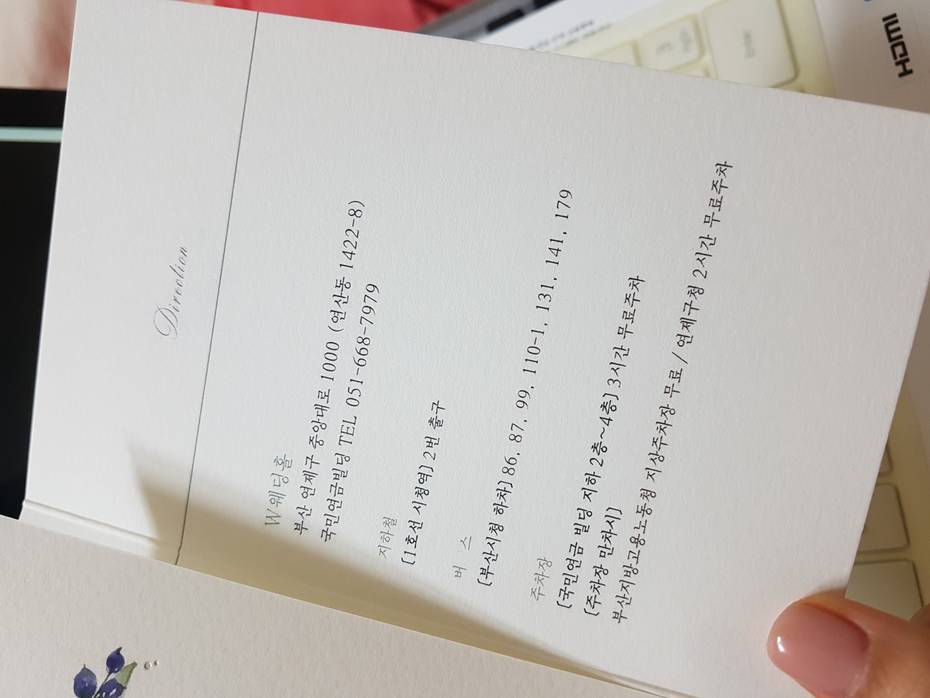 Direction
W웨딩홀
부산 연제구 중앙대로 1000 (연산동 1422-8)
국민연금빌딩 TEL 051-668-7979
지하철
[1호선 시청역] 2번 출구
버 스
[부산시청 하차] 86, 87, 99, 110-1, 131, 141, 179
주차장
[국민연금 빌딩 지하 2층~4층] 3시간 무료주차
[주차장 만차시]
부산지방고용노동청 지상주차장 무료 / 연제구청 2시간 무료주차
HDMI
Enter